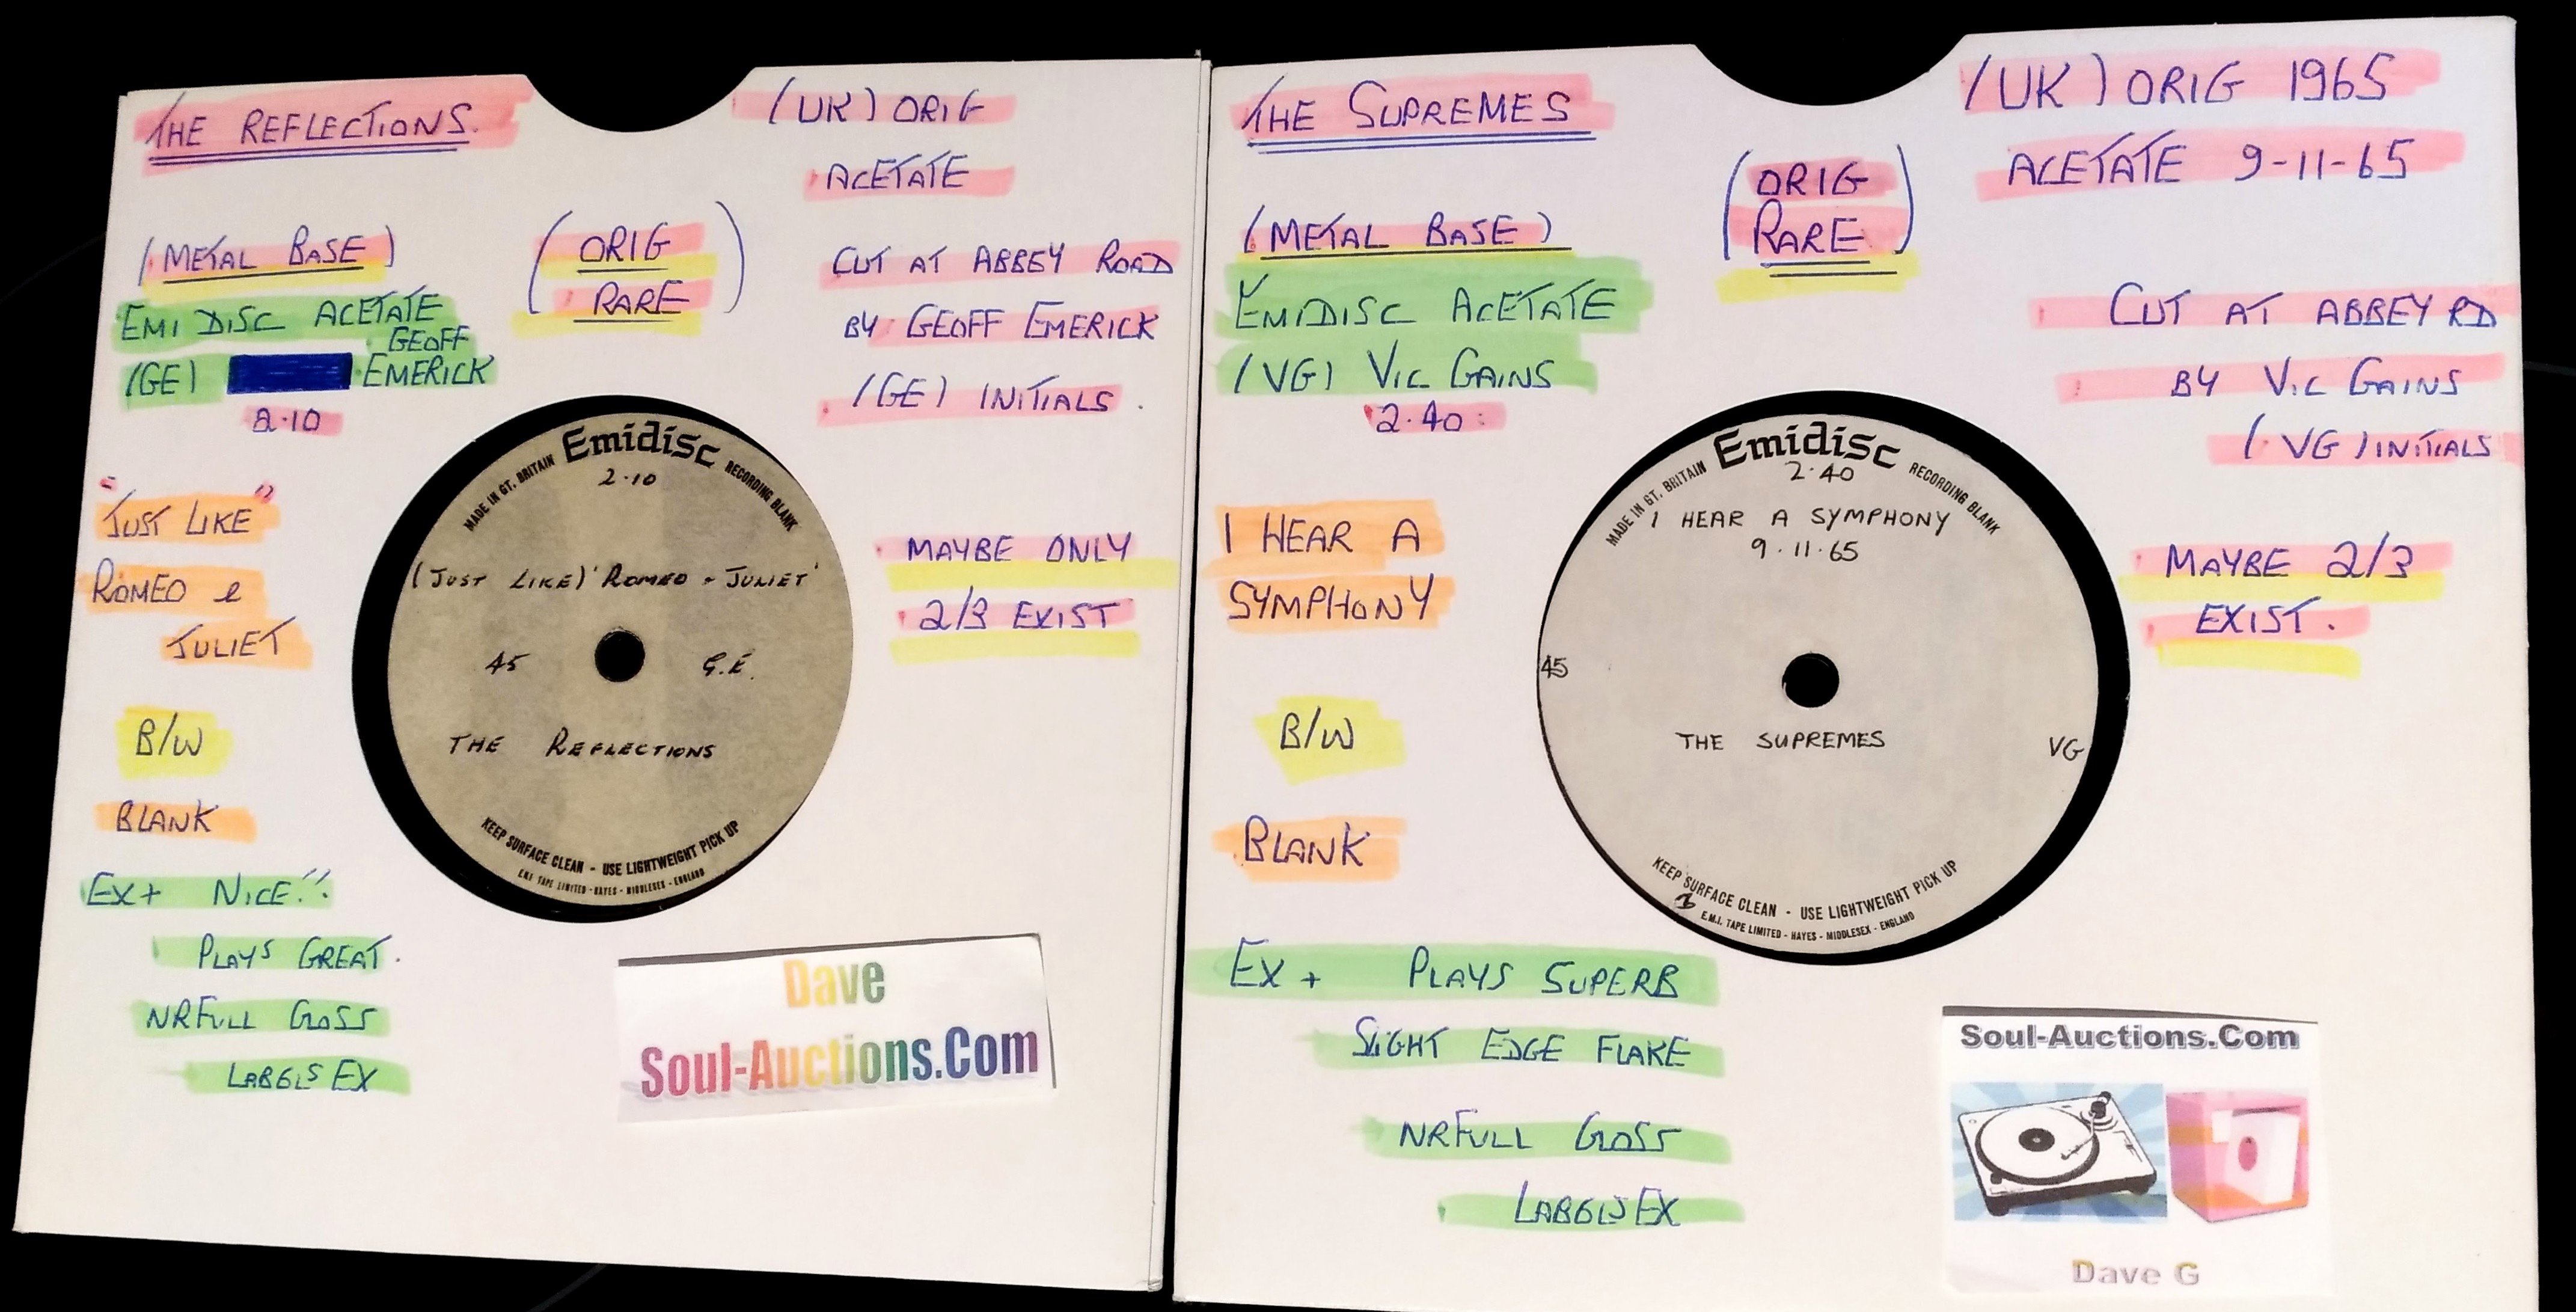 THE REFLECTIONS.
(UK) ORIG
ACETATE
(METAL BASE)
(ORIG
RARE)
CUT AT ABBEY ROAD
BY GEOFF EMERICK
(GE) INITIALS.
EMI DISC ACETATE
GEOFF
(GE) EMERICK
2.10
"JUST LIKE"
ROMEO e
JULIET
MAYBE ONLY
2/3 EXIST
B/W
BLANK
EX+ NICE!!
PLAYS GREAT.
NRFULL GLOSS
LABELS EX
MADE IN GT. BRITAIN Emidisc RECORDING BLANK
2.10
(JUST LIKE) 'ROMEO - JULIET'
45 G.E.
THE REFLECTIONS
KEEP SURFACE CLEAN - USE LIGHTWEIGHT PICK UP
E.M.I. TAPE LIMITED - HAYES - MIDDLESEX - ENGLAND
Dave
Soul-Auctions.Com
THE SUPREMES
(UK) ORIG 1965
ACETATE 9-11-65
(ORIG
RARE)
(METAL BASE)
EMIDISC ACETATE
(VG) VIC GAINS
2.40:
CUT AT ABBEY RD
BY VIC GAINS
(VG) INITIALS
I HEAR A
SYMPHONY
MAYBE 2/3
EXIST.
B/W
BLANK
MADE IN GT. BRITAIN Emidisc RECORDING BLANK
2.40
I HEAR A SYMPHONY
9.11.65
45
THE SUPREMES
VG
KEEP SURFACE CLEAN - USE LIGHTWEIGHT PICK UP
E.M.I. TAPE LIMITED - HAYES - MIDDLESEX - ENGLAND
EX + PLAYS SUPERB
SLIGHT EDGE FLAKE
NRFULL GLOSS
LABELS EX
Soul-Auctions.Com
Dave G